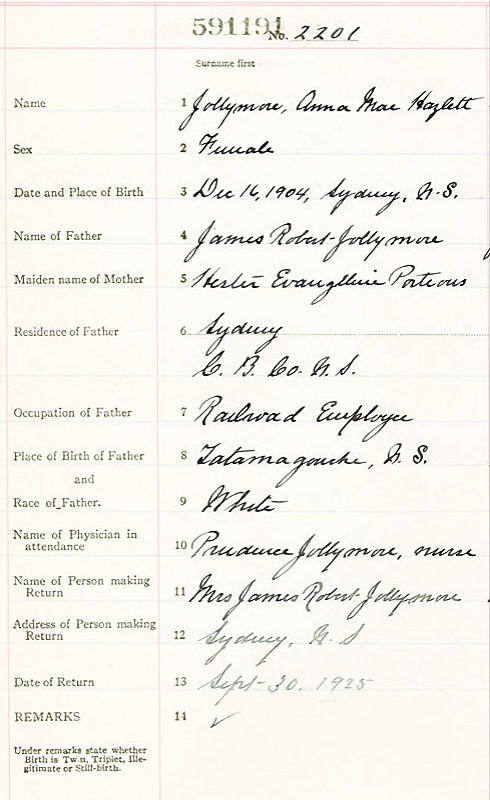 591191 No. 2201
Surname first
Name 1 Jollymore, Anna Mae Hazlett
Sex 2 Female
Date and Place of Birth 3 Dec 16, 1904, Sydney, N.S.
Name of Father 4 James Robert Jollymore
Maiden name of Mother 5 Hester Evangeline Porteous
Residence of Father 6 Sydney
C. B. Co. N. S.
Occupation of Father 7 Railroad Employee
Place of Birth of Father 8 Tatamagouche, N. S.
and
Race of Father. 9 White
Name of Physician in
attendance 10 Prudence Jollymore, nurse
Name of Person making
Return 11 Mrs James Robert Jollymore
Address of Person making
Return 12 Sydney, N. S
Date of Return 13 Sept 30. 1925
REMARKS 14 ✓
Under remarks state whether
Birth is Twin, Triplet, Ille-
gitimate or Still-birth.